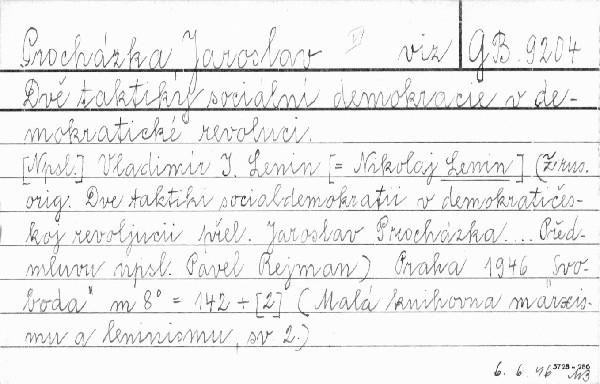 Procházka Jaroslav viz GB 9204
Dvě taktiky sociální demokracie v de-
mokratické revoluci.
[Npsl.] Vladimir I. Lenin [= Nikolaj Lenin] (Z rus.
orig. Dve taktiki socialdemokratii v demokratičes-
koj revoljucii přel. Jaroslav Procházka.... Před-
mluvu npsl. Pavel Rejman) Praha 1946 Svo-
boda" m 8° = 142 + [2] (Malá knihovna "marxis-
mu a leninismu, sv 2.)
6. 6. 46 5725 - 286